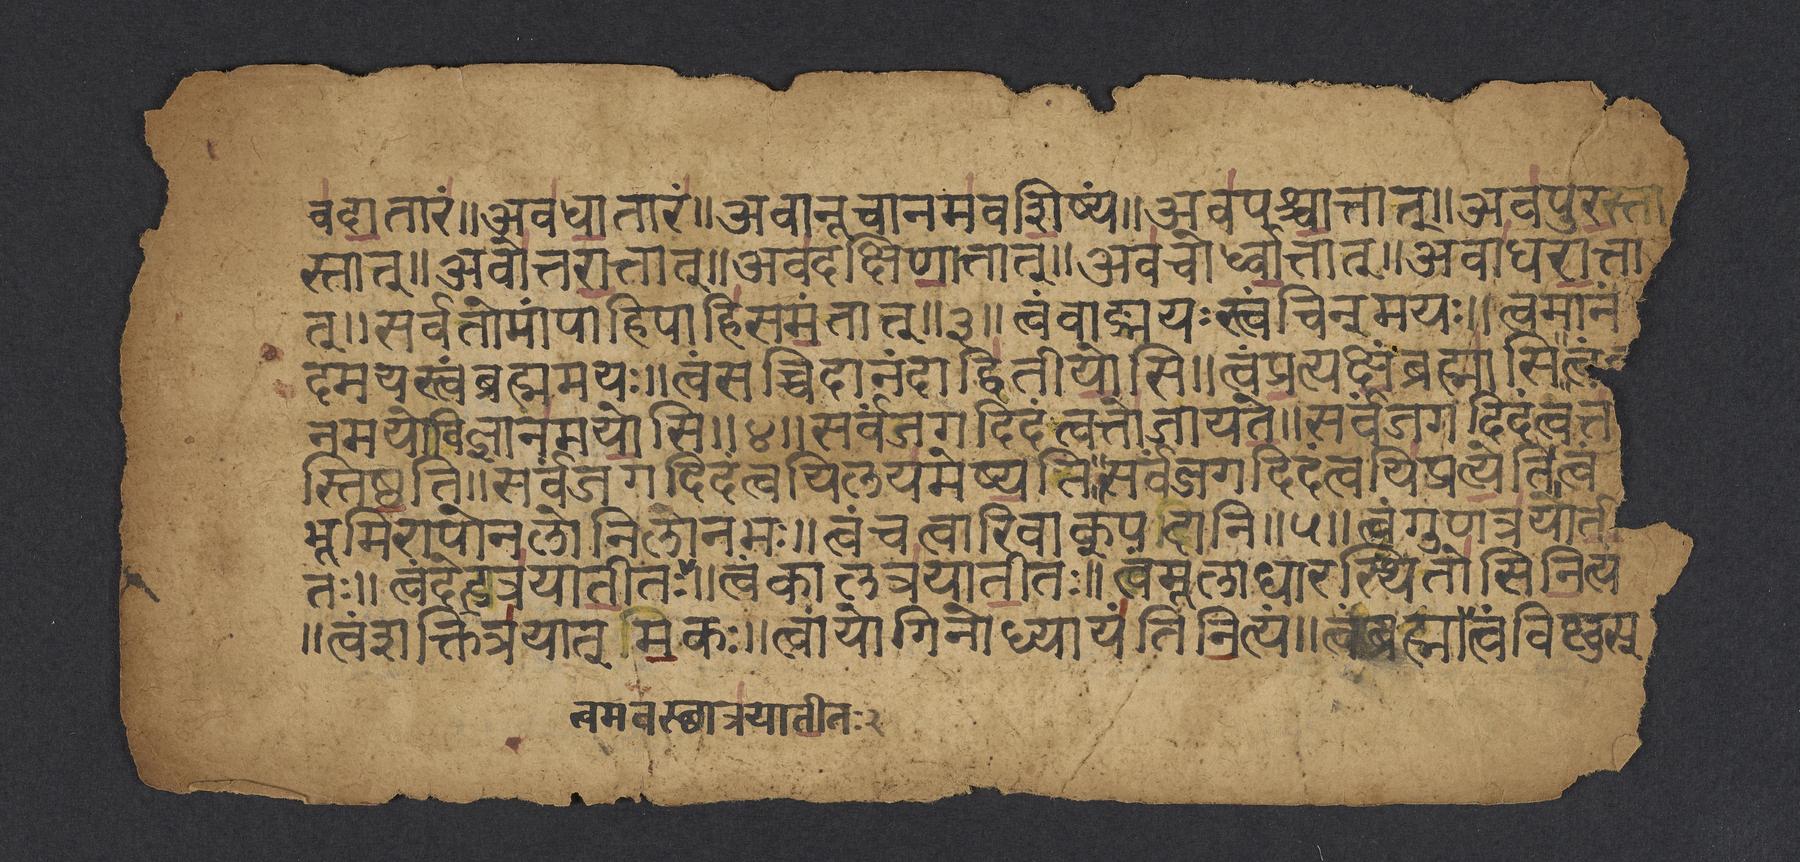 वदातारं॥अवधातारं॥अवानूचानमवशिष्यं॥अवपश्चात्तात्॥अवपुरस्ता
स्तात्॥अवोत्तरात्तात्॥अवदक्षिणात्तात्॥अवचोर्ध्वात्तात्॥अवाधरात्ता
त्॥सर्वतोमांपाहिपाहिसमंतात्॥३॥त्वंवाङ्मयःस्त्वंचिन्मयः॥त्वमानं
दमयस्त्वंब्रह्ममयः॥त्वंसच्चिदानंदाद्वितीयोसि॥त्वंप्रत्यक्षंब्रह्मासि॥त्वं
नमयोविज्ञानमयोसि॥४॥सर्वंजगदिदंत्वत्तोजायते॥सर्वंजगदिदंत्वत्त
स्तिष्ठति॥सर्वंजगदिदंत्वयिलयमेष्यति॥सर्वंजगदिदंत्वयिप्रत्येति॥त्वं
भूमिरापोनलोनिलोनभः॥त्वंचत्वारिवाक्पदानि॥५॥त्वंगुणत्रयाती
तः॥त्वंदेहत्रयातीतः॥त्वंकालत्रयातीतः॥त्वंमूलाधारस्थितोसिनित्यं
॥त्वंशक्तित्रयात्मिकः॥त्वांयोगिनोध्यायंतिनित्यं॥त्वंब्रह्मात्वंविष्णुस्
त्वमवस्छात्रयातीतः२